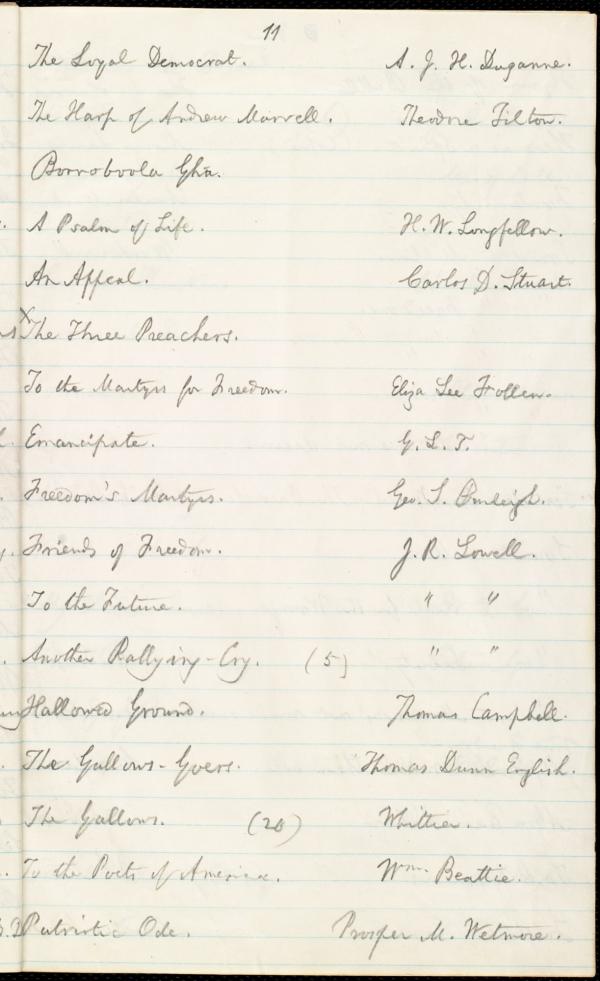 11
The Loyal Democrat. A. J. H. Duganne.
The Harp of Andrew Marvell. Theodore Tilton.
Borroboola Gha.
A Psalm of Life. H. W. Longfellow.
An Appeal. Carlos D. Stuart.
x The Three Preachers.
To the Martyrs for Freedom. Eliza Lee Follen.
Emancipate. G. L. T.
Freedom's Martyrs. Geo. S. Burleigh.
Friends of Freedom. J. R. Lowell.
To the Future. " "
Another Rallying-Cry. (5) " "
Hallowed Ground. Thomas Campbell.
The Gallows-Goers. Thomas Dunn English.
The Gallows. Whittier.
To the Poets of America. Wm. Beattie.
Patriotic Ode. Prosper M. Wetmore.